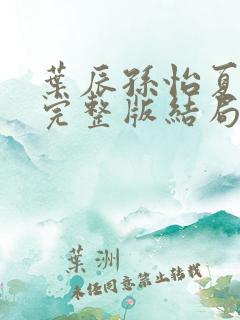 葉辰孫怡夏
完整版結局
葉洲
未经同意禁止转载